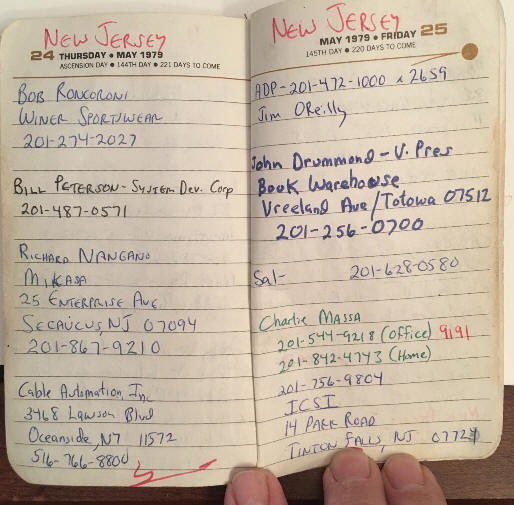 NEW JERSEY
24 THURSDAY • MAY 1979
ASCENSION DAY • 144TH DAY • 221 DAYS TO COME
BOB RONCORONI
WINER SPORTSWEAR
201-274-2027
BILL PETERSON - SYSTEM DEV. CORP
201-487-0571
RICHARD NANGANO
MIKASA
25 ENTERPRISE AVE
SECAUCUS, NJ 07094
201-867-9210
Cable Automation, Inc
3468 Lawson Blvd
Oceanside, NY 11572
516-766-8800
NEW JERSEY
MAY 1979 • FRIDAY 25
145TH DAY • 220 DAYS TO COME
ADP - 201-472-1000 x 2659
Jim OReilly
John Drummond - V. Pres
Book Warehouse
Vreeland Ave/Totowa 07512
201-256-0700
Sal - 201-628-0580
Charlie MASSA
201-544-9218 (Office) 9191
201-842-4743 (Home)
201-756-9804
ICSI
14 PARK ROAD
TINTON FALLS, NJ 07724